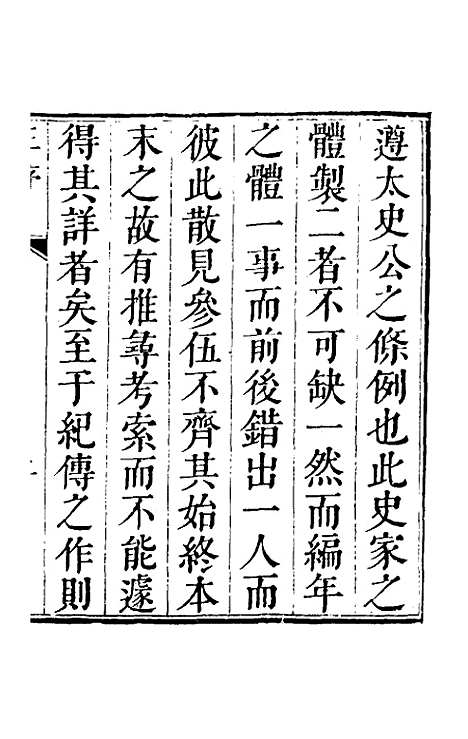 遵太史公之條例也此史家之
體製二者不可缺一然而編年
之體一事而前後錯出一人而
彼此散見參伍不齊其始終本
末之故有推尋考索而不能遽
得其詳者矣至于紀傳之作則